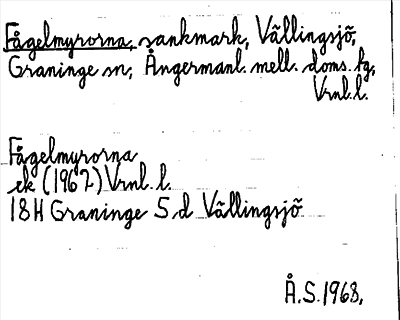 Fågelmyrorna, sankmark, Vällingsjö,
Graninge sn, Ångermanl. mell. doms. fg,
Vrnl. l.
Fågelmyrorna
ek (1962) Vrnl. l.
18H Graninge 5 d Vällingsjö
Å.S. 1968,